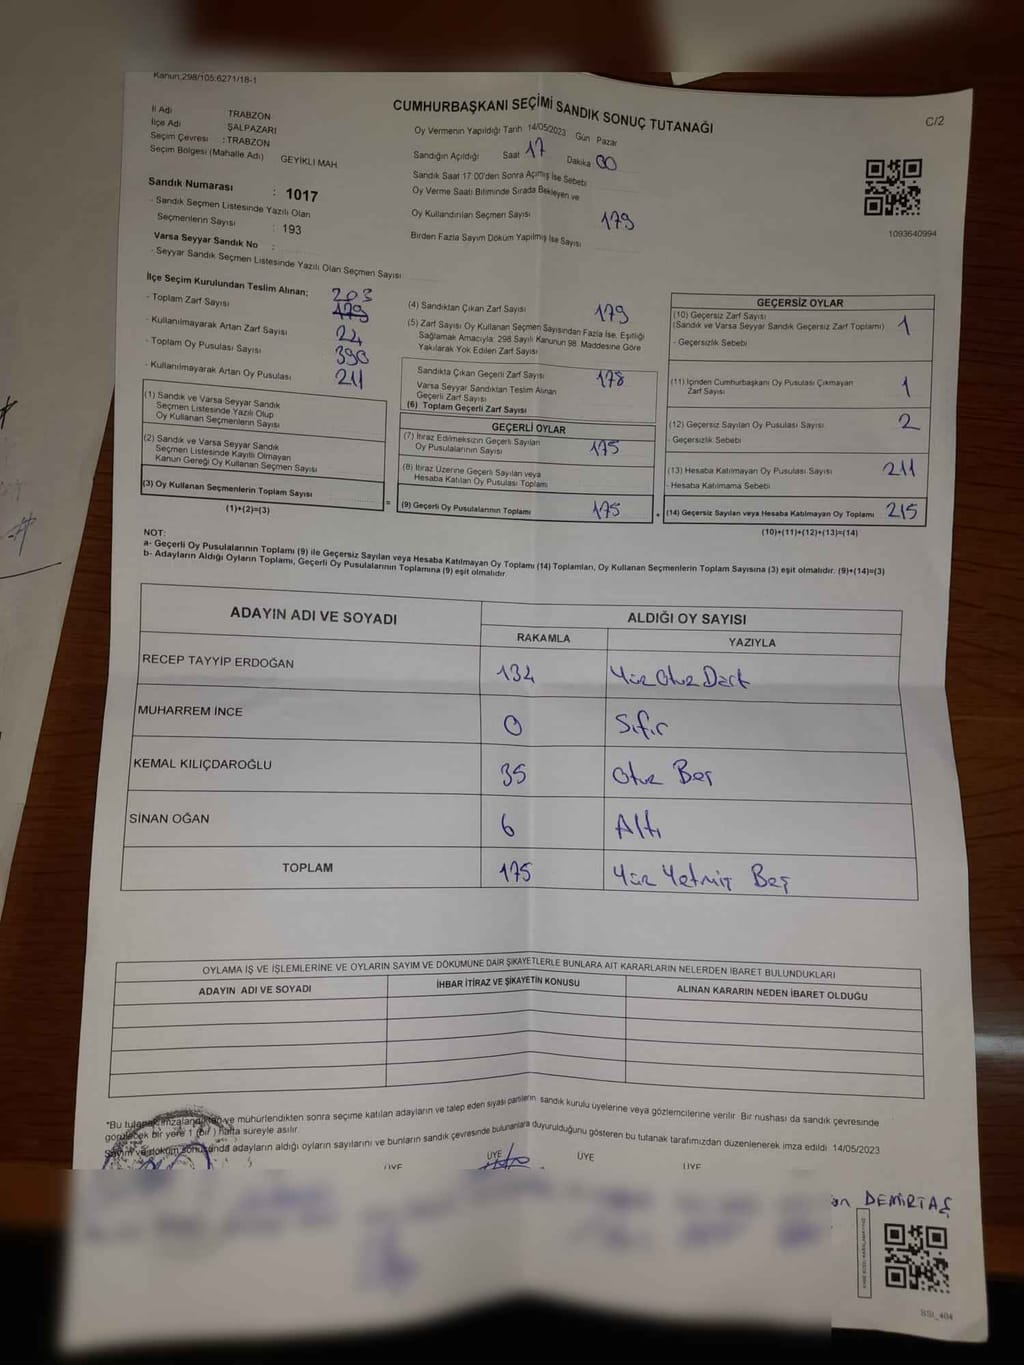 Kanun,298/105:6271/18-1
CUMHURBAŞKANI SEÇİMİ SANDIK SONUÇ TUTANAĞI
C/2
İl Adı TRABZON
İlçe Adı ŞALPAZARI
Seçim Çevresi : TRABZON
Seçim Bölgesi (Mahalle Adı) GEYİKLİ MAH.
Sandık Numarası : 1017
- Sandık Seçmen Listesinde Yazılı Olan
Seçmenlerin Sayısı : 193
Varsa Seyyar Sandık No :
- Seyyar Sandık Seçmen Listesinde Yazılı Olan Seçmen Sayısı
Oy Vermenin Yapıldığı Tarih 14/05/2023 Gün Pazar
Sandığın Açıldığı Saat 17 Dakika 00
Sandık Saat 17:00'den Sonra Açılmış İse Sebebi
Oy Verme Saati Bitiminde Sırada Bekleyen ve
Oy Kullandırılan Seçmen Sayısı 179
Birden Fazla Sayım Döküm Yapılmış İse Sayısı
1093640994
İlçe Seçim Kurulundan Teslim Alınan;
203
- Toplam Zarf Sayısı 179
- Kullanılmayarak Artan Zarf Sayısı 24
- Toplam Oy Pusulası Sayısı 390
- Kullanılmayarak Artan Oy Pusulası 211
(1) Sandık ve Varsa Seyyar Sandık
Seçmen Listesinde Yazılı Olup
Oy Kullanan Seçmenlerin Sayısı
(2) Sandık ve Varsa Seyyar Sandık
Seçmen Listesinde Kayıtlı Olmayan
Kanun Gereği Oy Kullanan Seçmen Sayısı
(3) Oy Kullanan Seçmenlerin Toplam Sayısı
(1)+(2)=(3)
(4) Sandıktan Çıkan Zarf Sayısı 179
(5) Zarf Sayısı Oy Kullanan Seçmen Sayısından Fazla İse, Eşitliği
Sağlamak Amacıyla; 298 Sayılı Kanunun 98. Maddesine Göre
Yakılarak Yok Edilen Zarf Sayısı
Sandıkta Çıkan Geçerli Zarf Sayısı 178
Varsa Seyyar Sandıktan Teslim Alınan
Geçerli Zarf Sayısı
(6) Toplam Geçerli Zarf Sayısı
GEÇERLİ OYLAR
(7) İtiraz Edilmeksizin Geçerli Sayılan
Oy Pusulalarının Sayısı 175
(8) İtiraz Üzerine Geçerli Sayılan veya
Hesaba Katılan Oy Pusulası Toplamı
= (9) Geçerli Oy Pusulalarının Toplamı 175 +
GEÇERSİZ OYLAR
(10) Geçersiz Zarf Sayısı 1
(Sandık ve Varsa Seyyar Sandık Geçersiz Zarf Toplamı)
- Geçersizlik Sebebi
(11) İçinden Cumhurbaşkanı Oy Pusulası Çıkmayan
Zarf Sayısı 1
(12) Geçersiz Sayılan Oy Pusulası Sayısı 2
- Geçersizlik Sebebi
(13) Hesaba Katılmayan Oy Pusulası Sayısı 211
- Hesaba Katılmama Sebebi
(14) Geçersiz Sayılan veya Hesaba Katılmayan Oy Toplamı 215
(10)+(11)+(12)+(13)=(14)
NOT:
a- Geçerli Oy Pusulalarının Toplamı (9) ile Geçersiz Sayılan veya Hesaba Katılmayan Oy Toplamı (14) Toplamları, Oy Kullanan Seçmenlerin Toplam Sayısına (3) eşit olmalıdır. (9)+(14)=(3)
b- Adayların Aldığı Oyların Toplamı, Geçerli Oy Pusulalarının Toplamına (9) eşit olmalıdır.
ADAYIN ADI VE SOYADI ALDIĞI OY SAYISI
RAKAMLA YAZIYLA
RECEP TAYYİP ERDOĞAN 134 Yüz Otuz Dört
MUHARREM İNCE 0 Sıfır
KEMAL KILIÇDAROĞLU 35 Otuz Beş
SİNAN OĞAN 6 Altı
TOPLAM 175 Yüz Yetmiş Beş
OYLAMA İŞ VE İŞLEMLERİNE VE OYLARIN SAYIM VE DÖKÜMÜNE DAİR ŞİKAYETLERLE BUNLARA AİT KARARLARIN NELERDEN İBARET BULUNDUKLARI
ADAYIN ADI VE SOYADI İHBAR İTİRAZ VE ŞİKAYETİN KONUSU ALINAN KARARIN NEDEN İBARET OLDUĞU
"Bu tutanak imzalandıktan ve mühürlendikten sonra seçime katılan adayların ve talep eden siyasi partilerin, sandık kurulu üyelerine veya gözlemcilerine verilir. Bir nüshası da sandık çevresinde
görülecek bir yere 1 (bir) hafta süreyle asılır.
Sayım ve döküm sonucunda adayların aldığı oyların sayılarını ve bunların sandık çevresinde bulunanlara duyurulduğunu gösteren bu tutanak tarafımızdan düzenlenerek imza edildi. 14/05/2023
ÜYE ÜYE ÜYE ÜYE
DEMİRTAŞ
SSİ_404